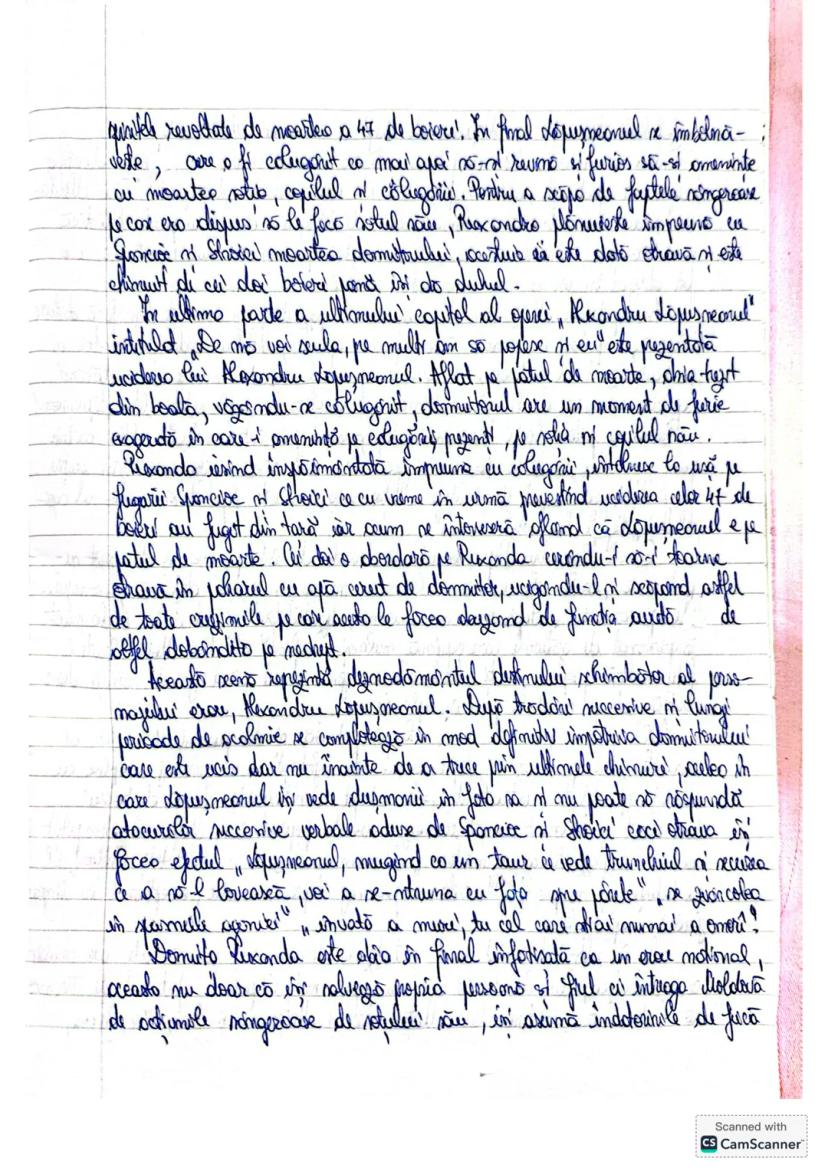 revoltate de moartea a 47 de boieri. În final Lăpușneanul se îmbolnă-
vește, cere a fi călugărit ca mai apoi să-și revină și furios să-și amenințe
cu moartea soția, copilul și călugării. Pentru a scăpa de faptele sângeroase
pe care era dispus să le facă soțul său, Ruxandra plănuiește împreună cu
Spancioc și Stroici moartea domnitorului, acestuia îi este dată otravă și este
chinuit de cei doi boieri până își dă duhul.
În ultima parte a ultimului capitol al operei „Alexandru Lăpușneanul"
intitulat „De mă voi scula, pe mulți am să popesc și eu" este prezentată
uciderea lui Alexandru Lăpușneanul. Aflat pe patul de moarte, abia trezit
din boală, văzându-se călugărit, domnitorul are un moment de furie
exagerată în care-i amenință pe călugării prezenți, pe soția și copilul său.
Ruxanda ieșind înspăimântată împreună cu călugării, întâlnesc la ușă pe
fugarii Spancioc și Stroici ce cu vreme în urmă prevestind uciderea celor 47 de
boieri au fugit din țară iar acum se întorseseră aflând că Lăpușneanul e pe
patul de moarte. Cei doi o abordară pe Ruxanda cerându-i să-i toarne
otravă în paharul cu apă cerut de domnitor, ucigându-l și scăpând astfel
de toate cruzimile pe care acesta le făcea uzând de funcția de
altfel dobândită pe nedrept.
Această scenă reprezintă deznodământul destinului schimbător al perso-
najului erou, Alexandru Lăpușneanul. După trădări succesive și lungi
perioade de acalmie se complotează în mod definitiv împotriva domnitorului
care este ucis dar nu înainte de a trece prin ultimele chinuri, acelea în
care Lăpușneanul își vede dușmanii în fața sa și nu poate să răspundă
atacurilor succesive verbale aduse de Spancioc și Stroici căci otrava își
făcea efectul „Lăpușneanul, mugind ca un taur ce vede trunchiul și securea
ce a să-l lovească, voi a se-nturna cu fața spre părete". „se zvârcolea
în spasmele agoniei" „învață a muri, tu cel care știai numai a omorî"
Domnița Ruxanda este abia în final înfățișată ca un erou național,
aceasta nu doar că își salvează propria persoană și fiul ci întreaga Moldovă
de acțiunile sângeroase de soțului său, își asumă îndatoririle de fiică
Scanned with
CS CamScanner